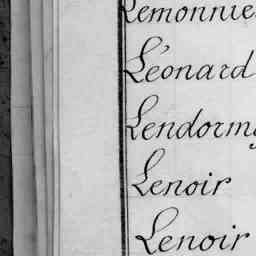 Lemonnie
Léonard
Lendormy
Lenoir
Lenoir